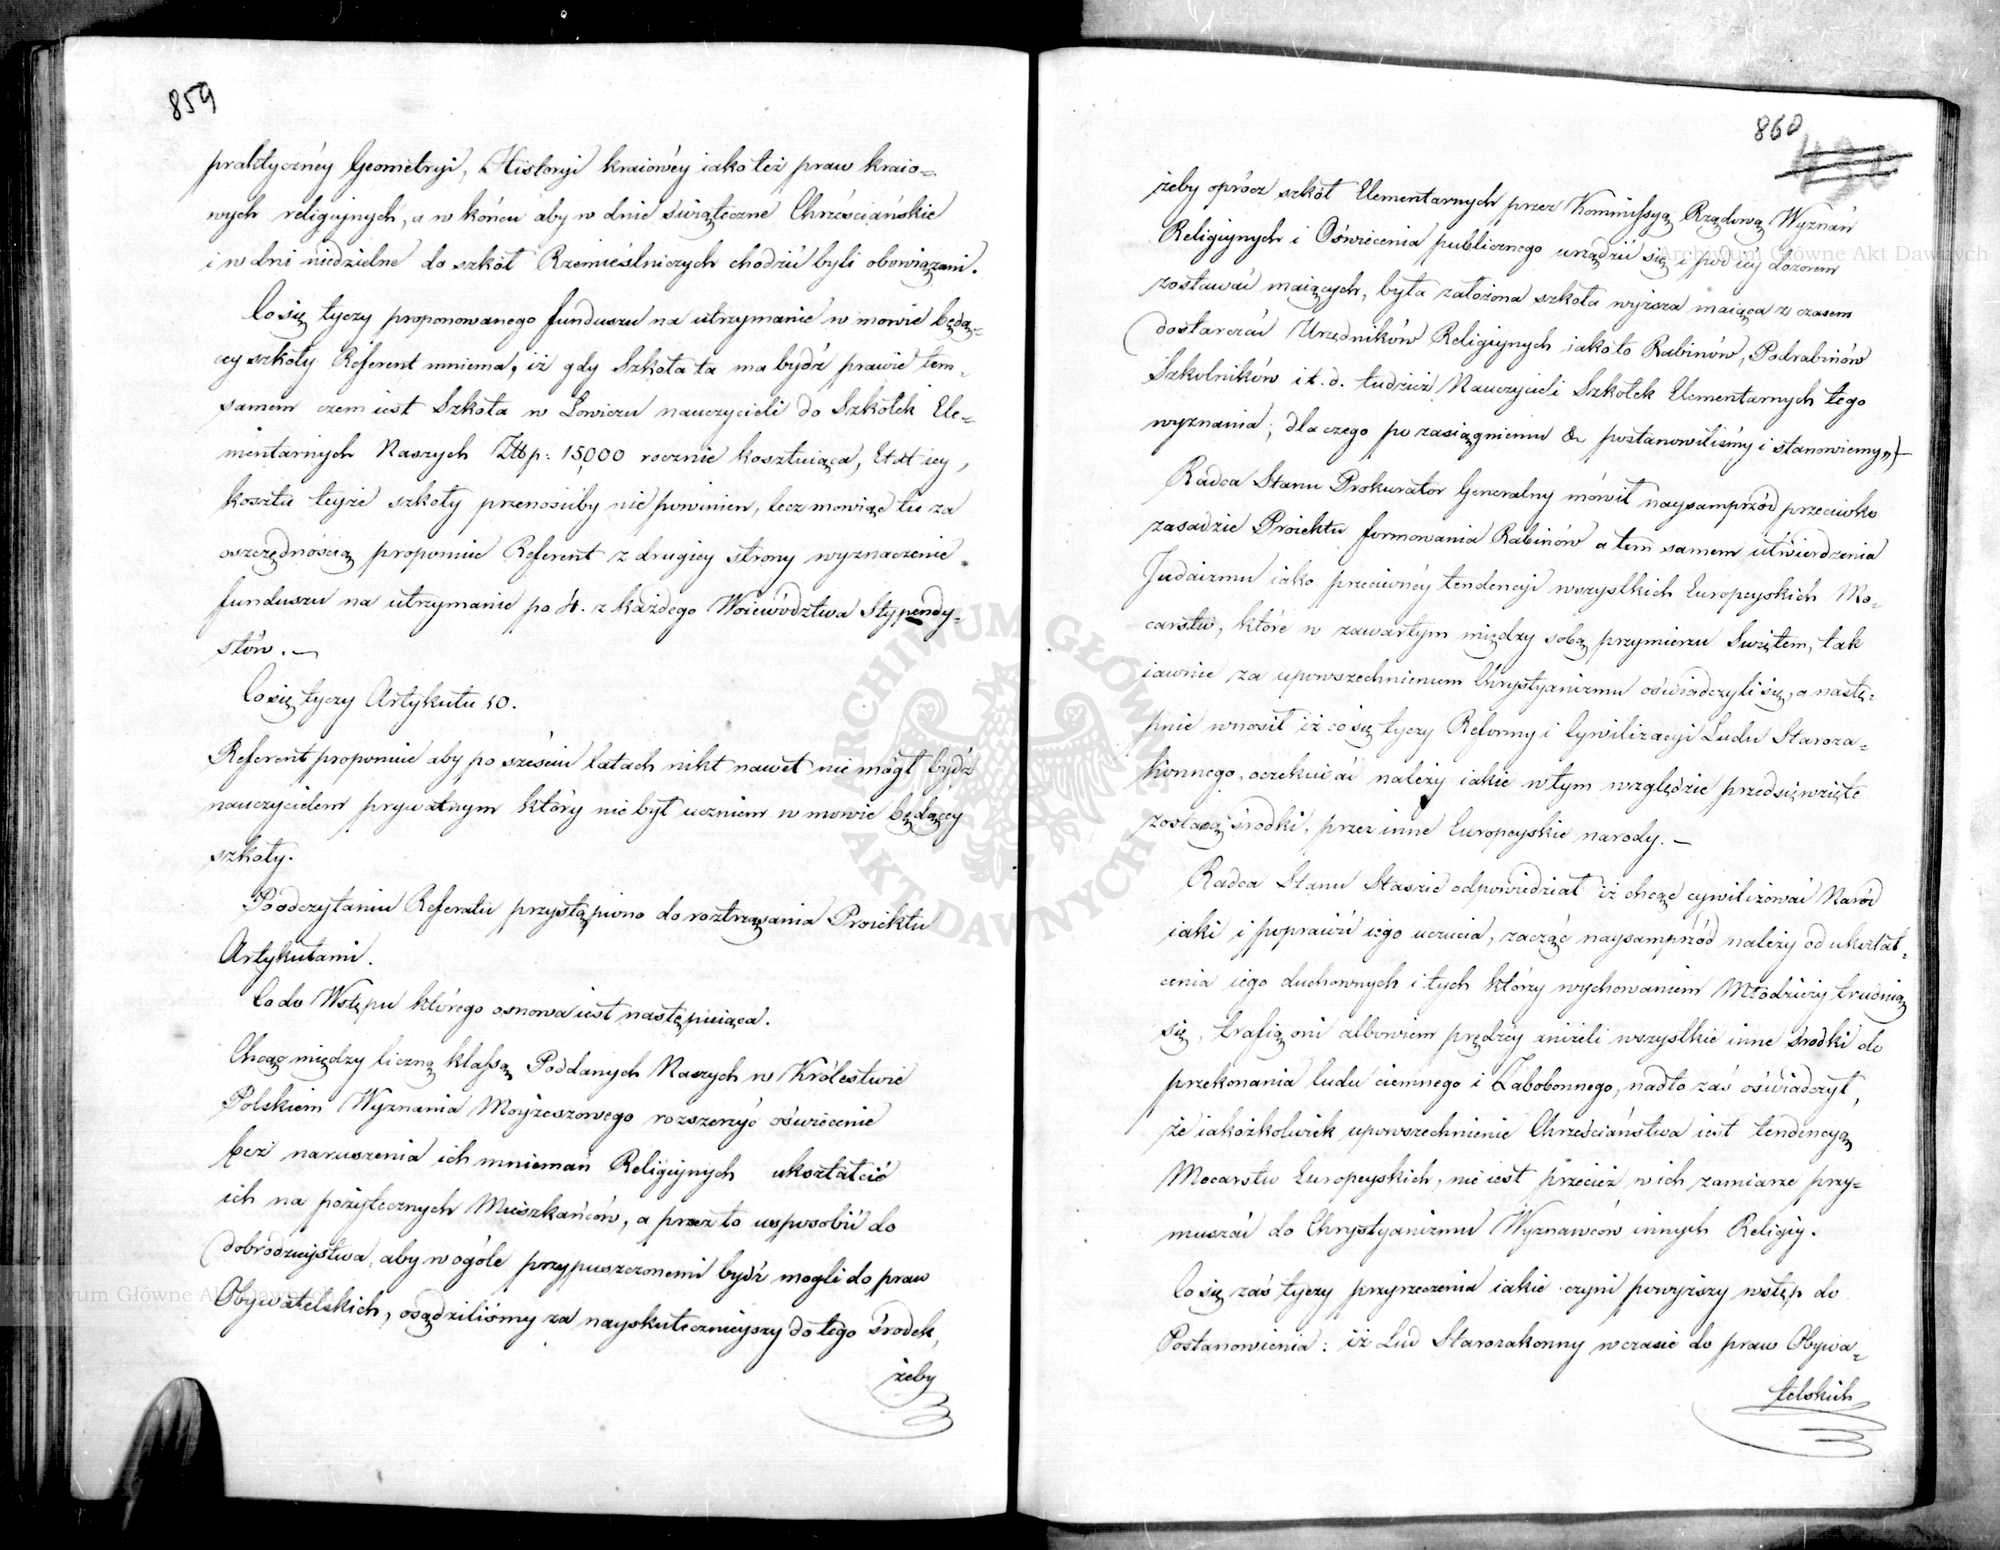 859
praktycznéy Geometryi, Historyi kraiowéy iako też praw kraio=
wych religiynych, a w końcu aby w dnie świąteczne Chrześciańskie
i w dni niedzielne do szkół Rzemieślniczych chodzić byli obowiązani.
Co się tyczy proponowanego funduszu na utrzymanie w mowie będą=
cey szkoły Referent mniema, iż gdy Szkoła ta ma bydź prawie tem=
samem czem iest Szkoła w Łowiczu nauczycieli do Szkółek Ele=
mentarnych Naszych Złłp: 15,000 rocznie kosztuiąca, Etat iey,
kosztu teyże szkoły przenosićby nie powinien, lecz mówiąc tu za
oszczędnością proponuie Referent z drugiey strony wyznaczenie
funduszu na utrzymanie po 4. z każdego Woiewództwa Stypendy=
stów. —
Co się tyczy Artykułu 10.
Referent proponuie aby po sześciu latach nikt nawet nie mógł bydź
nauczycielem prywatnym który nie był uczniem w mowie będącey
szkoły.
Po odczytaniu Referatu przystąpiono do roztrząsania Proiektu
Artykułami.
Co do Wstępu którego osnowa iest następuiąca.
Chcąc między liczną klassą Poddanych Naszych w Królestwie
Polskiem Wyznania Moyżeszowego rozszerzyć oświecenie
bez naruszenia ich mniemań Religiynych ukształcić
ich na pożytecznych Mieszkańców, a przez to usposobić do
dobrodzieystwa, aby w ogóle przypuszczonemi bydź mogli do praw
Obywatelskich, osądziliśmy za nayskutecznieyszy do tego środek,
żeby
860
żeby oprócz szkół Elementarnych przez Kommissyą Rządową Wyznań
Religiynych i Oświecenia publicznego urządzić się i pod iey dozorem
zostawać maiących, była założona szkoła wyższa maiąca z czasem
dostarczać Urzędników Religiynych iako to Rabinów, Podrabinów
Szkolników i t. d. tudzież Nauczycieli Szkółek Elementarnych tego
wyznania; dla czego po zasiągnieniu &c postanowiliśmy i stanowiemy")—
Radca Stanu Prokurator Generalny mówił naysamprzód przeciwko
zasadzie Proiektu formowania Rabinów a tem samem utwierdzenia
Judaizmu iako przeciwnéy tendencyi wszystkich Europeyskich Mo=
carstw, które w zawartym między sobą przymierzu Świętem, tak
iawnie za upowszechnieniem Chrystyanizmu oświadczyli się, a nastę=
pnie wnosił iż co się tyczy Reformy i Cywilizacyi Ludu Staroza=
konnego, oczekiwać należy iakie w tym względzie przedsięwzięte
zostaną środki, przez inne Europeyskie narody. —
Radca Stanu Staszic odpowiedział iż chcąc cywilizować Naród
iaki i poprawić iego uczucia, zacząć naysamprzód należy od ukształ=
cenia iego duchownych i tych którzy wychowaniem Młodzieży trudnią
się, trafią oni albowiem prędzéy aniżeli wszystkie inne środki do
przekonania ludu ciemnego i Zabobonnego, nadto zaś oświadczył,
że iakożkolwiek upowszechnienie Chrześciaństwa iest tendencyą
Mocarstw Europeyskich, nie iest przecież w ich zamiarze przy=
muszać do Chrystyanizmu Wyznawców innych Religiy.
Co się zaś tyczy przyrzeczenia iakie czyni powyższy wstęp do
Postanowienia: iż Lud Starozakonny w czasie do praw Obywa=
telskich
Archiwum Główne Akt Dawnych
Archiwum Główne Akt Dawnych
ARCHIWUM GŁÓWNE AKT DAWNYCH